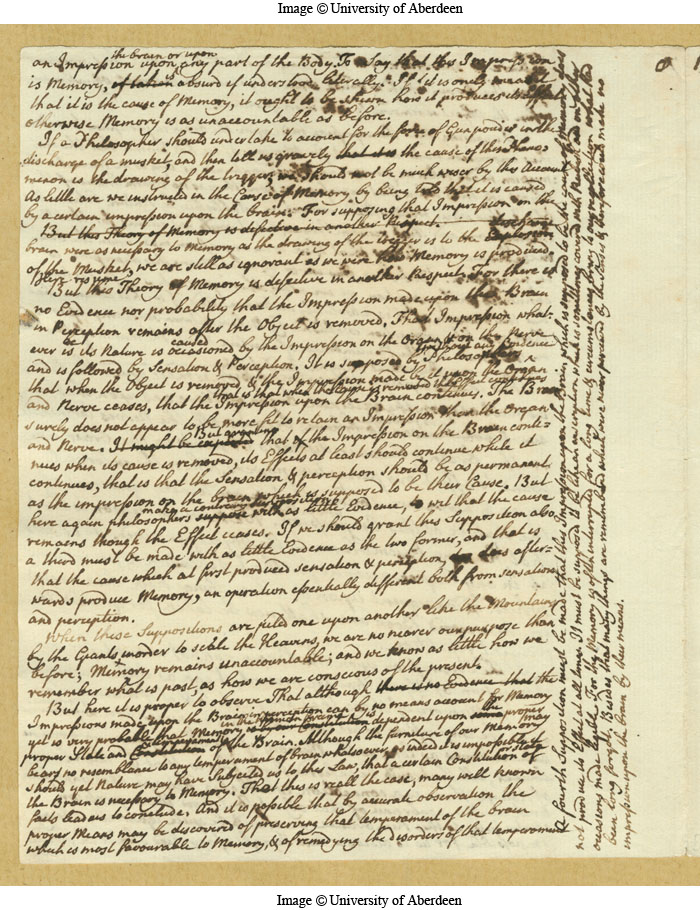 Image © University of Aberdeen
the brain or upon
an Impression upon any part of the Body. To say that this Impression
is Memory, absurd if understood literally. If it is onely meant
that it is the cause of Memory, it ought to be shewn how it produces its effect
otherwise Memory is as unaccountable as before.
If a Philosopher should undertake to account for the force of Gunpouder in the
discharge of a musket, and then tell us gravely that the cause of this Phæno
menon is the drawing of the trigger, we should not be much wiser by this Account
As little are we instructed in the Cause of Memory by being told that it is caused
by a certain impression upon the brain. For supposing that Impression on the
But this Theory of Memory is defective in another Respect.
brain were as necessary to Memory as the drawing of the trigger is to the
of the Musket, we are still as ignorant as we were how Memory is produced.
But this Theory of Memory is defective in another Respect. For there is
no Evidence nor probability that the Impression made upon the Brain
in Perception remains after the Object is removed. That Impression what-
be caused
ever is its Nature is occasioned by the Impression on the Organ & on the Nerve
without any Evidence
and is followed by Sensation & Perception. It is supposed by Philosophers
that when the Object is removed, & the Impression made by it upon the Organ
that is that when the Cause is removed the Effect continues
and Nerve ceases, that the Impression upon the Brain continues. The Brain
surely does not appear to be more fit to retain an Impression then the Organ
But granting
and Nerve. It might be that the Impression on the Brain conti=
nues when its cause is removed, its Effects at least should continue while it
continues, that is that the Sensation & perception should be as permanent
as the impression on the brain which is supposed to be their Cause. But
make a contrary supposition
here again philosophers suppose with as little Evidence, to wit that the cause
remains though the Effect ceases. If we should grant this Supposition also
a third must be made with as little Evidence as the two former, and that is
that the cause which at first produced sensation & perception, does after-
wards produce Memory, an operation essentially different both from sensation
and perception.
When these Suppositions are piled one upon another like the Mountains
by the Giants in order to scale the Heavens, we are no nearer our purpose than
before; Memory remains unaccountable; and we know as little how we
remember what is past, as how we are conscious of the present.
But here it is proper to observe That although there is no Evidence that the
Impressions made upon the Brain in perception can by no means account for Memory
yet is very probable that Memory is dependent upon some proper
proper State and of the Brain. Although the furniture of our Memory may
bears no resemblance to any temperament of brain whatsoever, as indeed it is impossible it
should yet Nature may have Subjected us to this Law, that a certain Constitution of
or state
the Brain is necessary to Memory. That this is reall the case, many well known
facts lead us to conclude. And it is possible that by accurate observation the
proper Means may be discovered of preserving that temperament of the brain
which is most favourable to Memory, & of remedying the disorders of that temperament
A fourth Supposition must be made that this Impression upon the Brain, which is supposed to be the cause of Memory does
not produce its Effect at all times. It must be supposed to be the brain which is sometimes covered with and on
occasions made legible. For the Memory is often interrupted for a long time & circumstances bring to our recollection what had
been long forgot. Besides that many things are remembred which were never perceived by the senses & therefore could make no
impression upon the brain by their means.
Image © University of Aberdeen